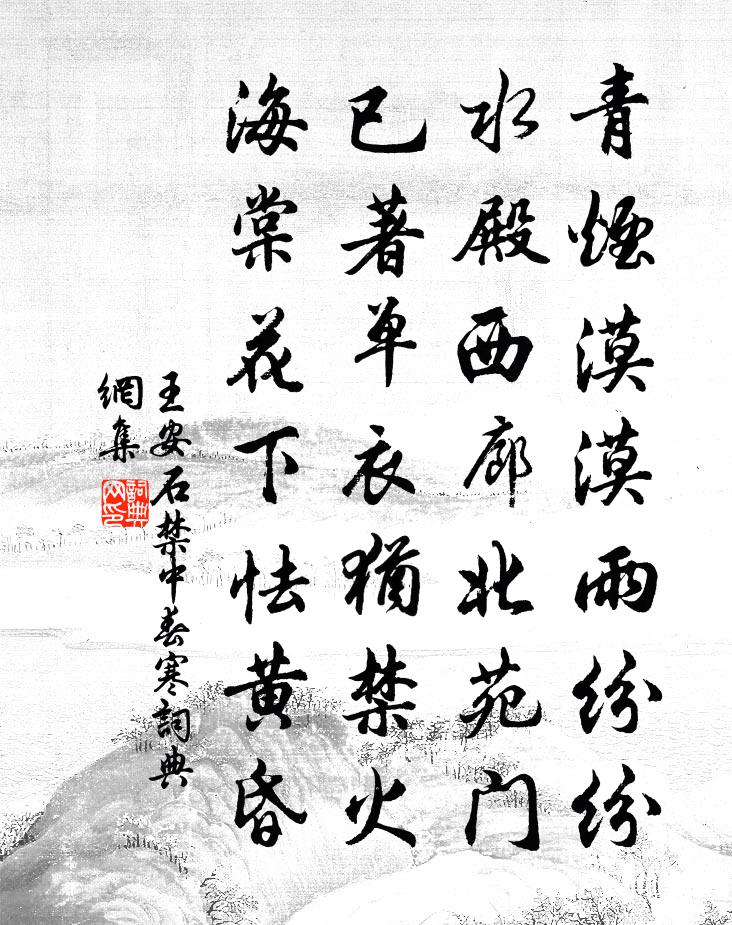 青煙漠漠雨紛紛
水殿西廊北苑门
已著单衣猶禁火
海棠花下怯黄昏
王安石禁中春寒詞典
網集
詞典
网印